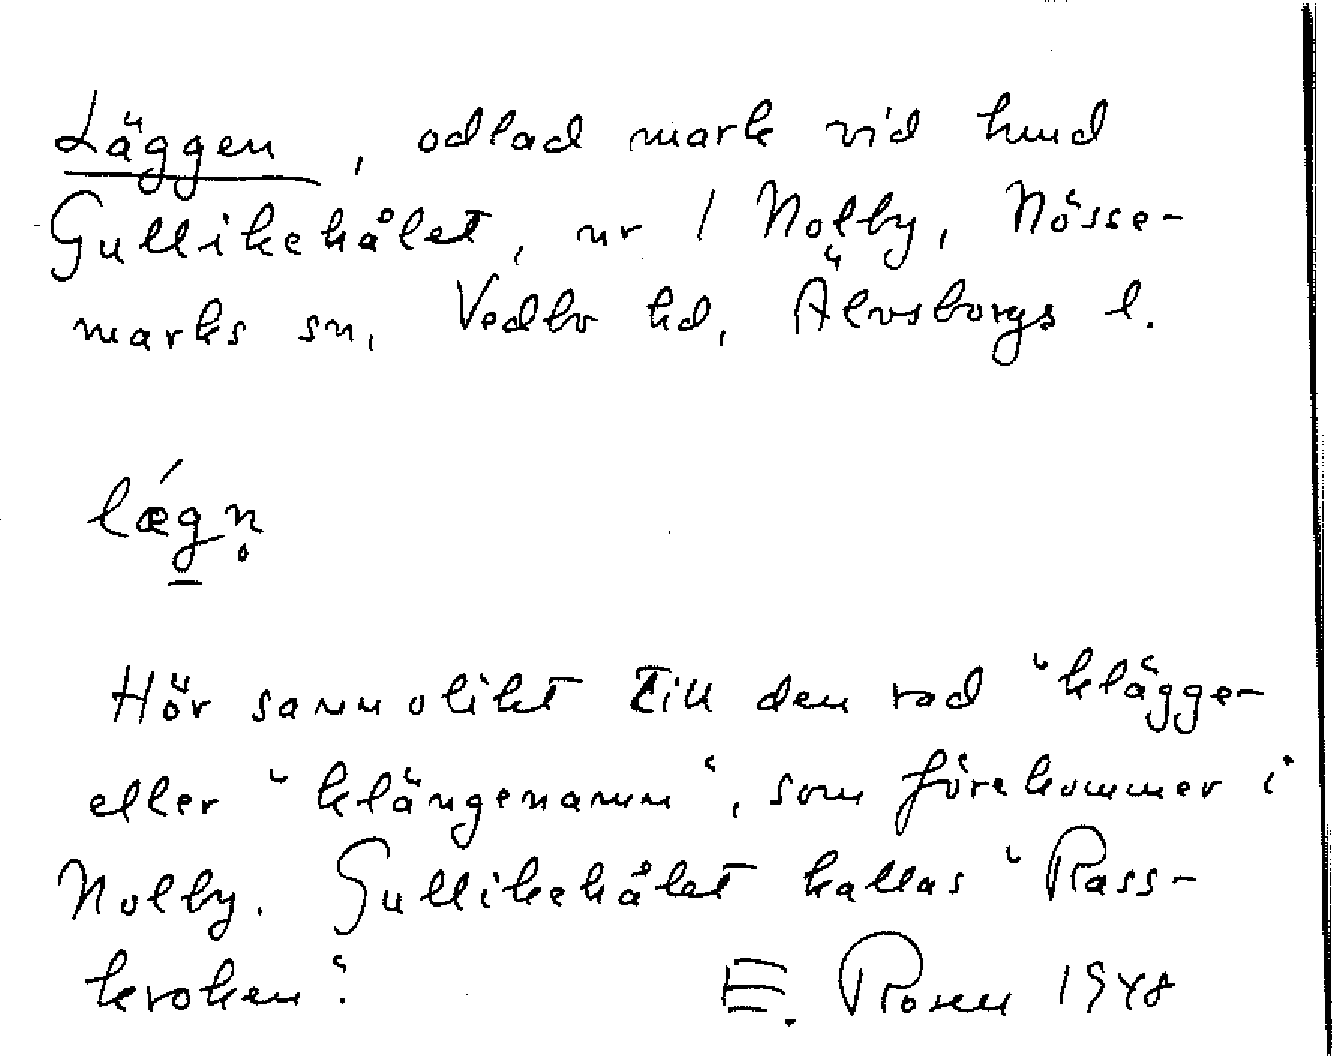 Läggen, odlad mark vid hmd
Gullikekålet, nr 1 Nolby, Nösse-
marks sn, Vedbo hd, Älvsborgs l.
lǽgn̥
Hör sannolikt till den rad "klägge-
eller "klängenamn", som förekommer i
Nolby. Gullikekålet kallas "Rass-
kroken".
E. Rosen 1948